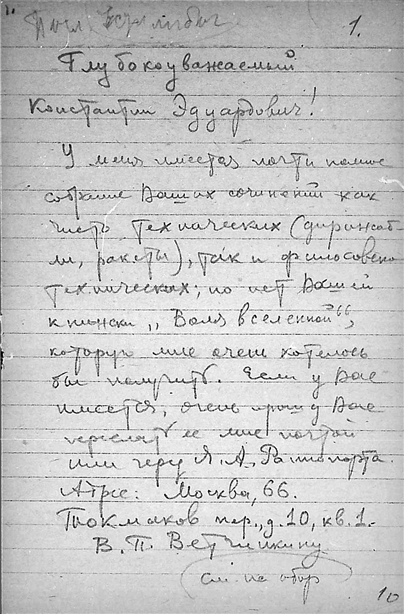 1.
Глубокоуважаемый
Константин Эдуардович!
У меня имеется почти полное
собрание Ваших сочинений как
чисто технических (дирижаб-
ли, ракеты), так и философско
технических; но нет Вашей
книжки „Воля вселенной“,
которую мне очень хотелось
бы получить. Если у Вас
имеется, очень прошу Вас
переслать ее мне почтой
или через Я. А. Рапопорта.
Адрес: Москва, 66.
Токмаков пер., д. 10, кв. 1.
В. П. Ветчинкину
(см. на обор)
10